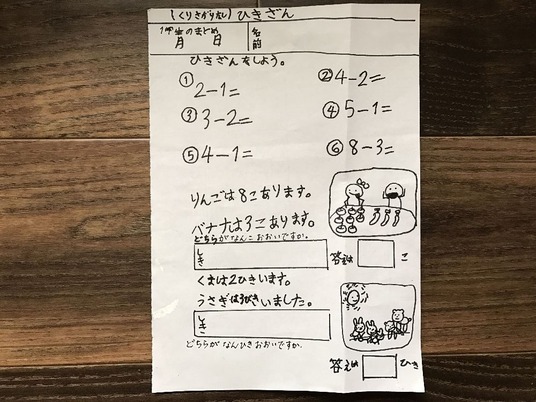 (くりさがりなし)ひきざん
1学きのまとめ
月 日
名前
ひきざんをしよう。
① 2-1= ② 4-2=
③ 3-2= ④ 5-1=
⑤ 4-1= ⑥ 8-3=
りんごは8こあります。
バナナは3こあります。
どちらがなんこおおいですか。
しき
答えは こ
くまは2ひきいます。
うさぎは3びきいました。
しき
どちらがなんひきおおいですか。
答えは ひき